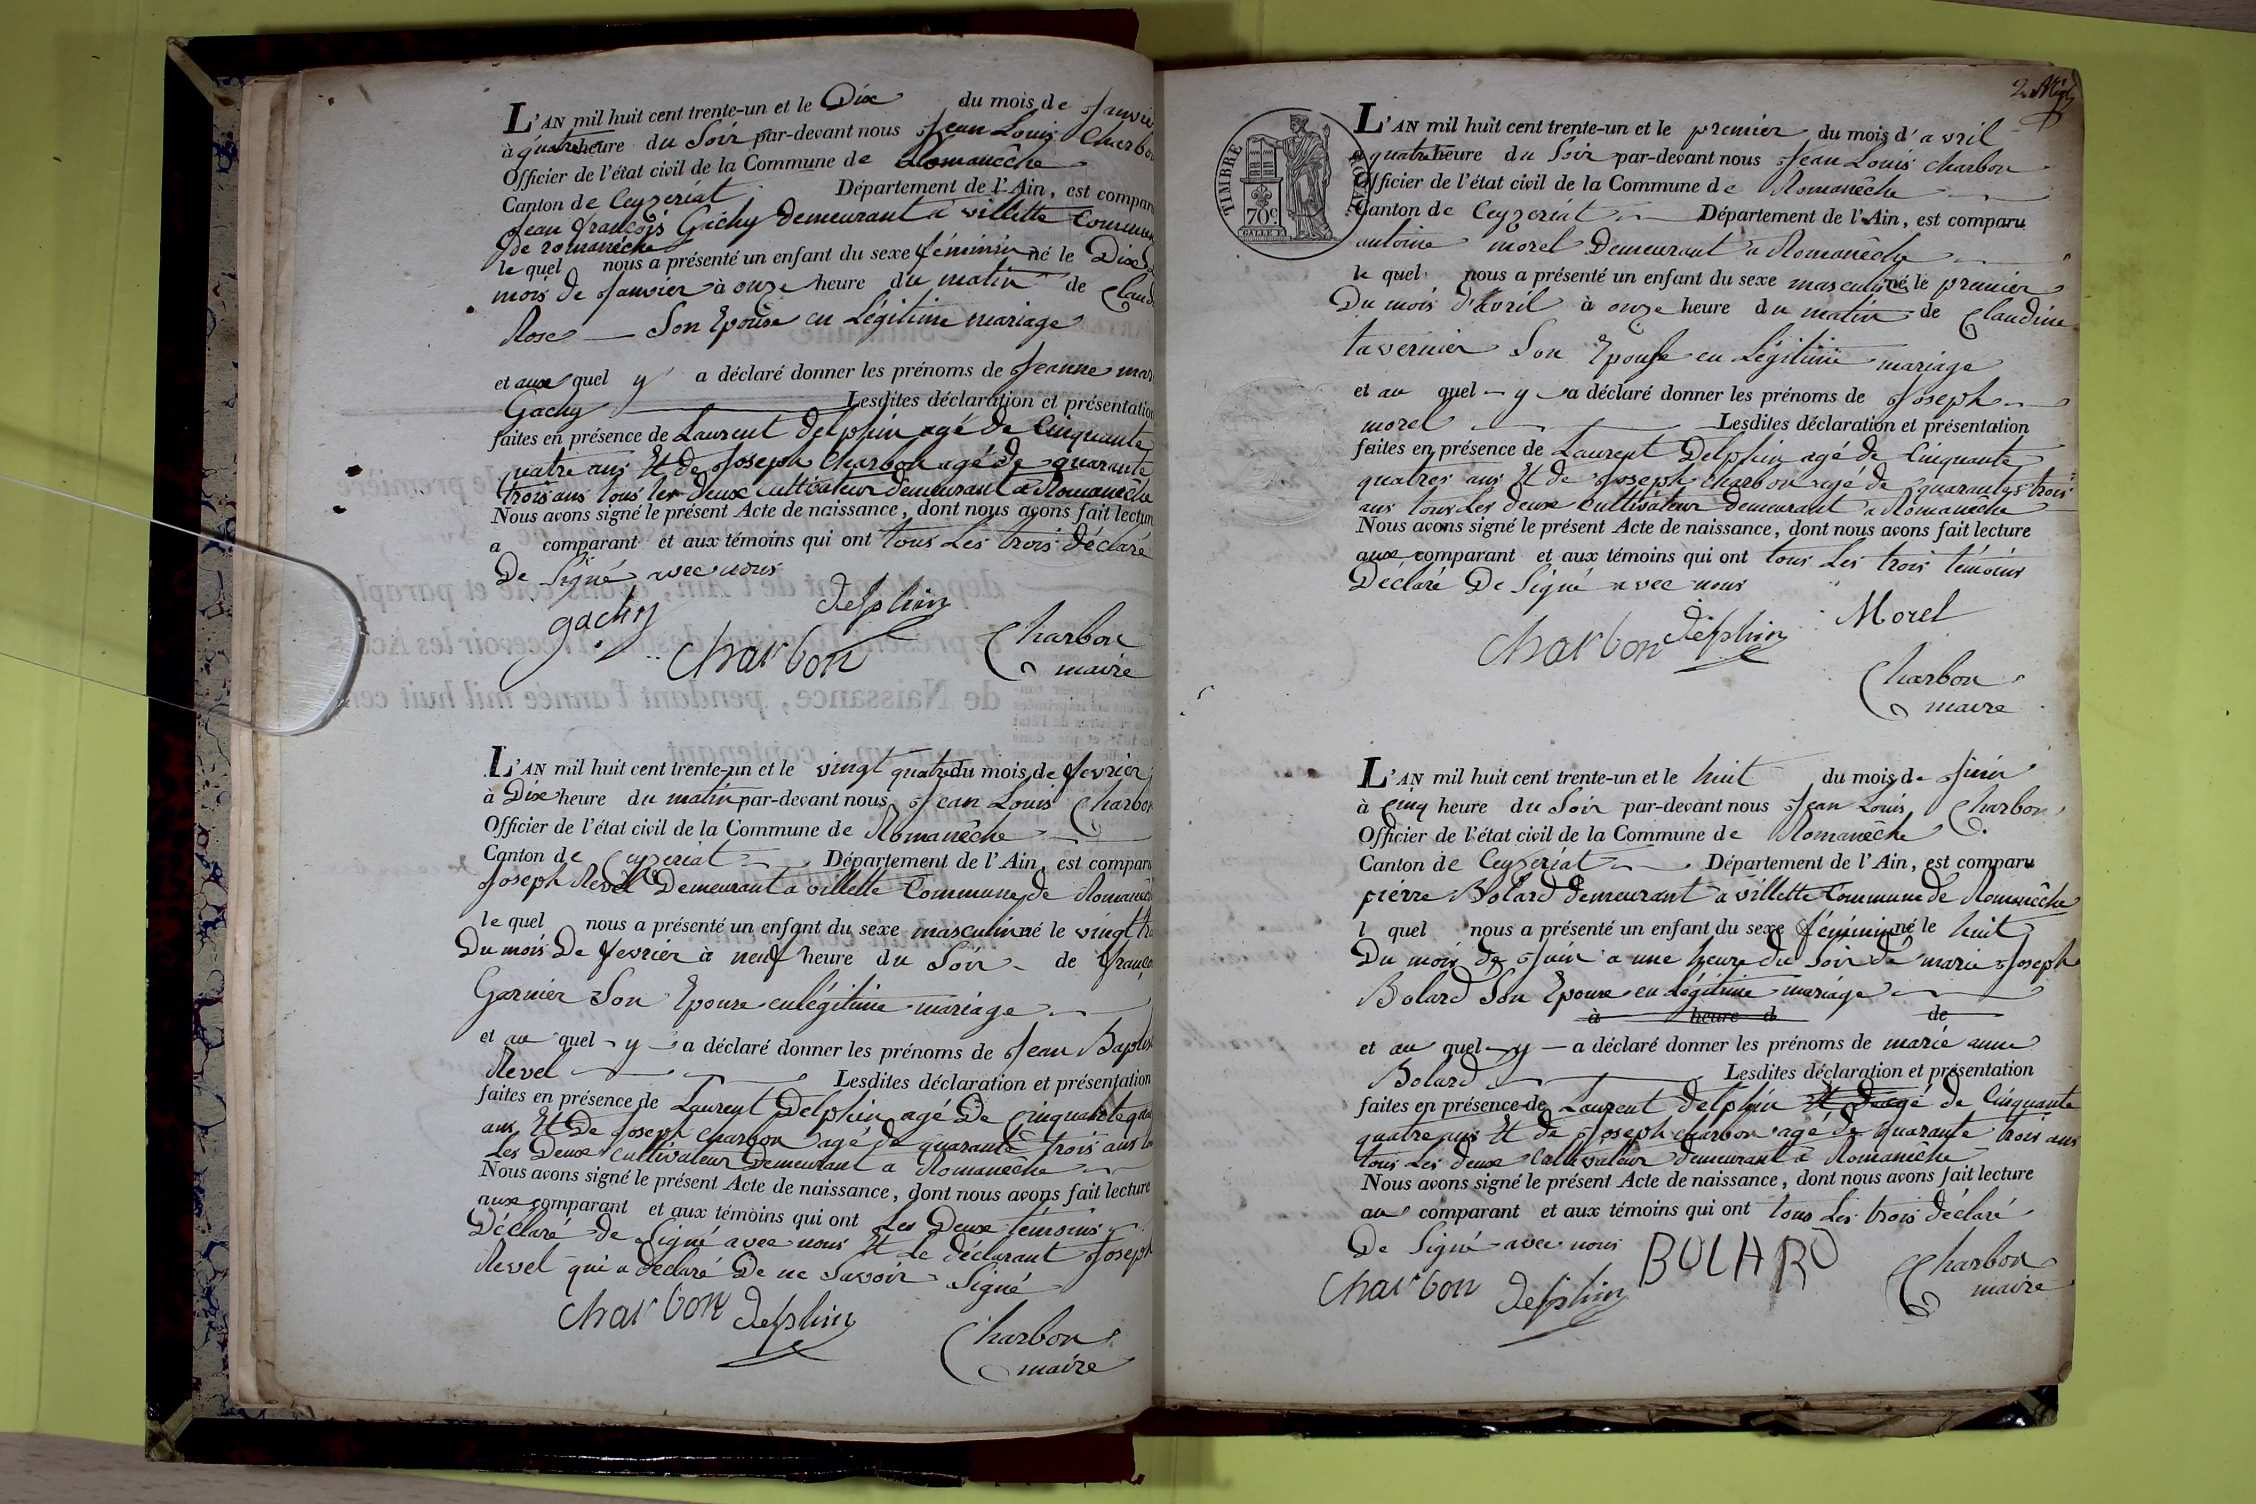 L'AN mil huit cent trente-un et le Dix du mois de Janvier
à quatre heure du Soir par-devant nous Jean Louis Charbon
Officier de l'état civil de la Commune de Romanêche
Canton de Ceyzeriat Département de l'Ain, est comparu
Jean françois Gachy demeurant à villette Commune
de romanêche
le quel nous a présenté un enfant du sexe féminin né le Dix du
mois de Janvier à onze heure du matin de Claud
Rose Son Epouse en Légitime mariage
et aux quel y a déclaré donner les prénoms de Jeanne mar
Gachy Lesdites déclaration et présentation
faites en présence de Laurent delphin agé de Cinquante
quatre ans Et de Joseph Charbon agé de quarante
trois ans tous les deux cultivateur demeurant à Romanêche
Nous avons signé le présent Acte de naissance, dont nous avons fait lecture
a comparant et aux témoins qui ont tous Les trois déclaré
De Signé avec nous
gachy delphin
Charbon Charbon
maire
L'AN mil huit cent trente-un et le vingt quatre du mois de fevrier
à Dix heure du matin par-devant nous Jean Louis Charbon
Officier de l'état civil de la Commune de Romanêche
Canton de Ceyzeriat Département de l'Ain, est comparu
Joseph Revel Demeurant a villette Commune de Romanêch
le quel nous a présenté un enfant du sexe masculin né le vingt tr
Du mois De fevrier à neuf heure du Soir de françoi
Garnier Son Epouse en légitime mariage
et au quel y a déclaré donner les prénoms de Jean Baptist
Revel Lesdites déclaration et présentation
faites en présence de Laurent Delphin agé De Cinquante qua
ans Et De Joseph Charbon agé de quarante trois ans to
Les Deux cultivateur Demeurant a Romanêche
Nous avons signé le présent Acte de naissance, dont nous avons fait lecture
aux comparant et aux témoins qui ont Les Deux témoins
Déclaré de Signé avec nous Et Le déclarant Joseph
Revel qui a déclaré De ne Savoir Signé
Charbon delphin
Charbon
maire
2.
TIMBRE ROYAL
70c
L'AN mil huit cent trente-un et le premier du mois d'avril
à quatre heure du Soir par-devant nous Jean Louis Charbon
Officier de l'état civil de la Commune de Romanêche
Canton de Ceyzeriat Département de l'Ain, est comparu
antoine morel Demeurant a Romanêche
le quel nous a présenté un enfant du sexe masculin né le premier
Du mois d'Avril à onze heure du matin de Claudine
tavernier Son Epouse en Légitime mariage
et au quel y a déclaré donner les prénoms de Joseph
morel Lesdites déclaration et présentation
faites en présence de Laurent Delphin agé de Cinquante
quatres ans Et de Joseph Charbon agé de quarantes trois
ans tous Les deux cultivateur demeurant a Romanêche
Nous avons signé le présent Acte de naissance, dont nous avons fait lecture
aux comparant et aux témoins qui ont tous Les trois témoins
Déclaré De Signé avec nous
Charbon delphin Morel
Charbon
maire
L'AN mil huit cent trente-un et le huit du mois de Juin
à Cinq heure du Soir par-devant nous Jean Louis Charbon
Officier de l'état civil de la Commune de Romanêche
Canton de Ceyzeriat Département de l'Ain, est comparu
pierre Bolard demeurant a villette Commune de Romanêche
l quel nous a présenté un enfant du sexe féminin né le huit
Du mois de Juin a une heure du Soir de marie Joseph
Bolard Son Epouse en Légitime mariage
à heure d de
et au quel y a déclaré donner les prénoms de marie anne
Bolard Lesdites déclaration et présentation
faites en présence de Laurent delphin Et De agé de Cinquante
quatre ans Et de Joseph charbon agé de quarante trois ans
tous Les deux Cultivateur demeurant à Romanêche
Nous avons signé le présent Acte de naissance, dont nous avons fait lecture
au comparant et aux témoins qui ont tous Les trois déclaré
De Signé avec nous
Charbon delphin BOLARD Charbon
maire